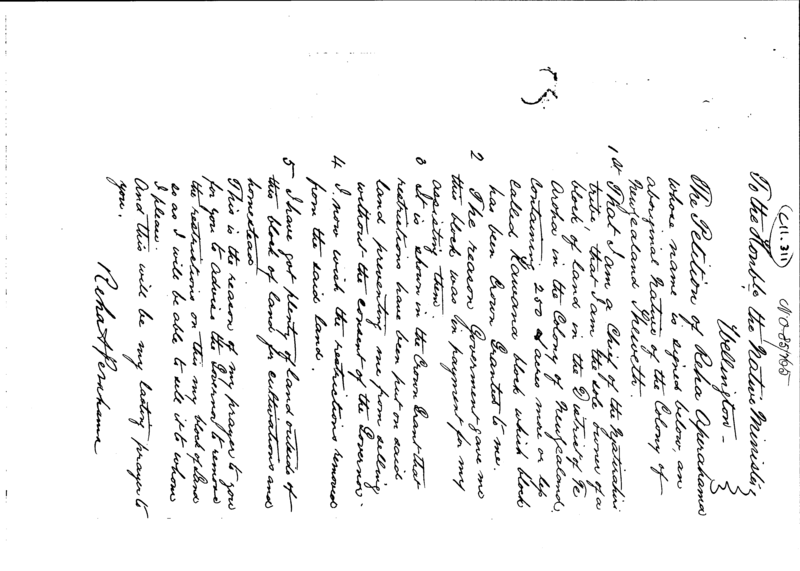 (C.11.311) No 857/85
To the Honble, the Native Minister
Wellington -
The Petition of Reha Aperahama
whose name is signed below, an
aboriginal Native of the Colony of
New Zealand Sheweth.
1st That I am a Chief of the
tribe, that I am the sole owner of a
block of land in the District of Te
Aroha in the Colony of New Zealand,
containing 250 acres more or less
called Kawana block which block
has been Crown Granted to me.
2 The reason Goverment gave me
this block was in payment for my
assisting them
3 It is shown in the Crown Grant that
restrictions have been put on said
land preventing me from selling
without the consent of the Governor.
4 I now wish the restrictions removed
from the said land.
5 I have got plenty of land outside of
this block of land for cultivations and
homestead
This is the reason of my prayer to you
for you to advise the Governor to remove
the restrictions on this my block of land
so as I will be able to sell it to whom
I please.
And this will be my lasting prayer to
you.
Reha Aperahama